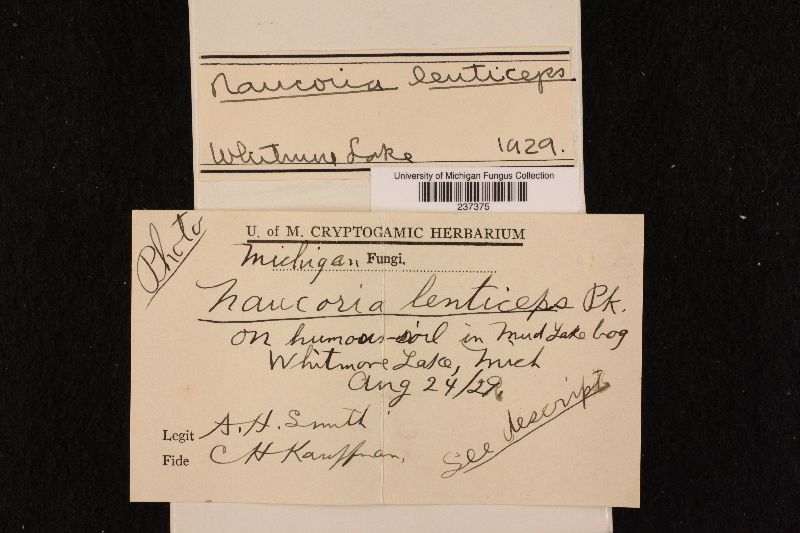 Naucoria lenticeps
Whitmore Lake 1929.
University of Michigan Fungus Collection
237375
Photo
U. of M. CRYPTOGAMIC HERBARIUM
Michigan Fungi.
Naucoria lenticeps Pk.
on humous soil in Mud Lake bog
Whitmore Lake, Mich
Aug 24/29.
Legit A. H. Smith
Fide C H Kauffman.
See descript